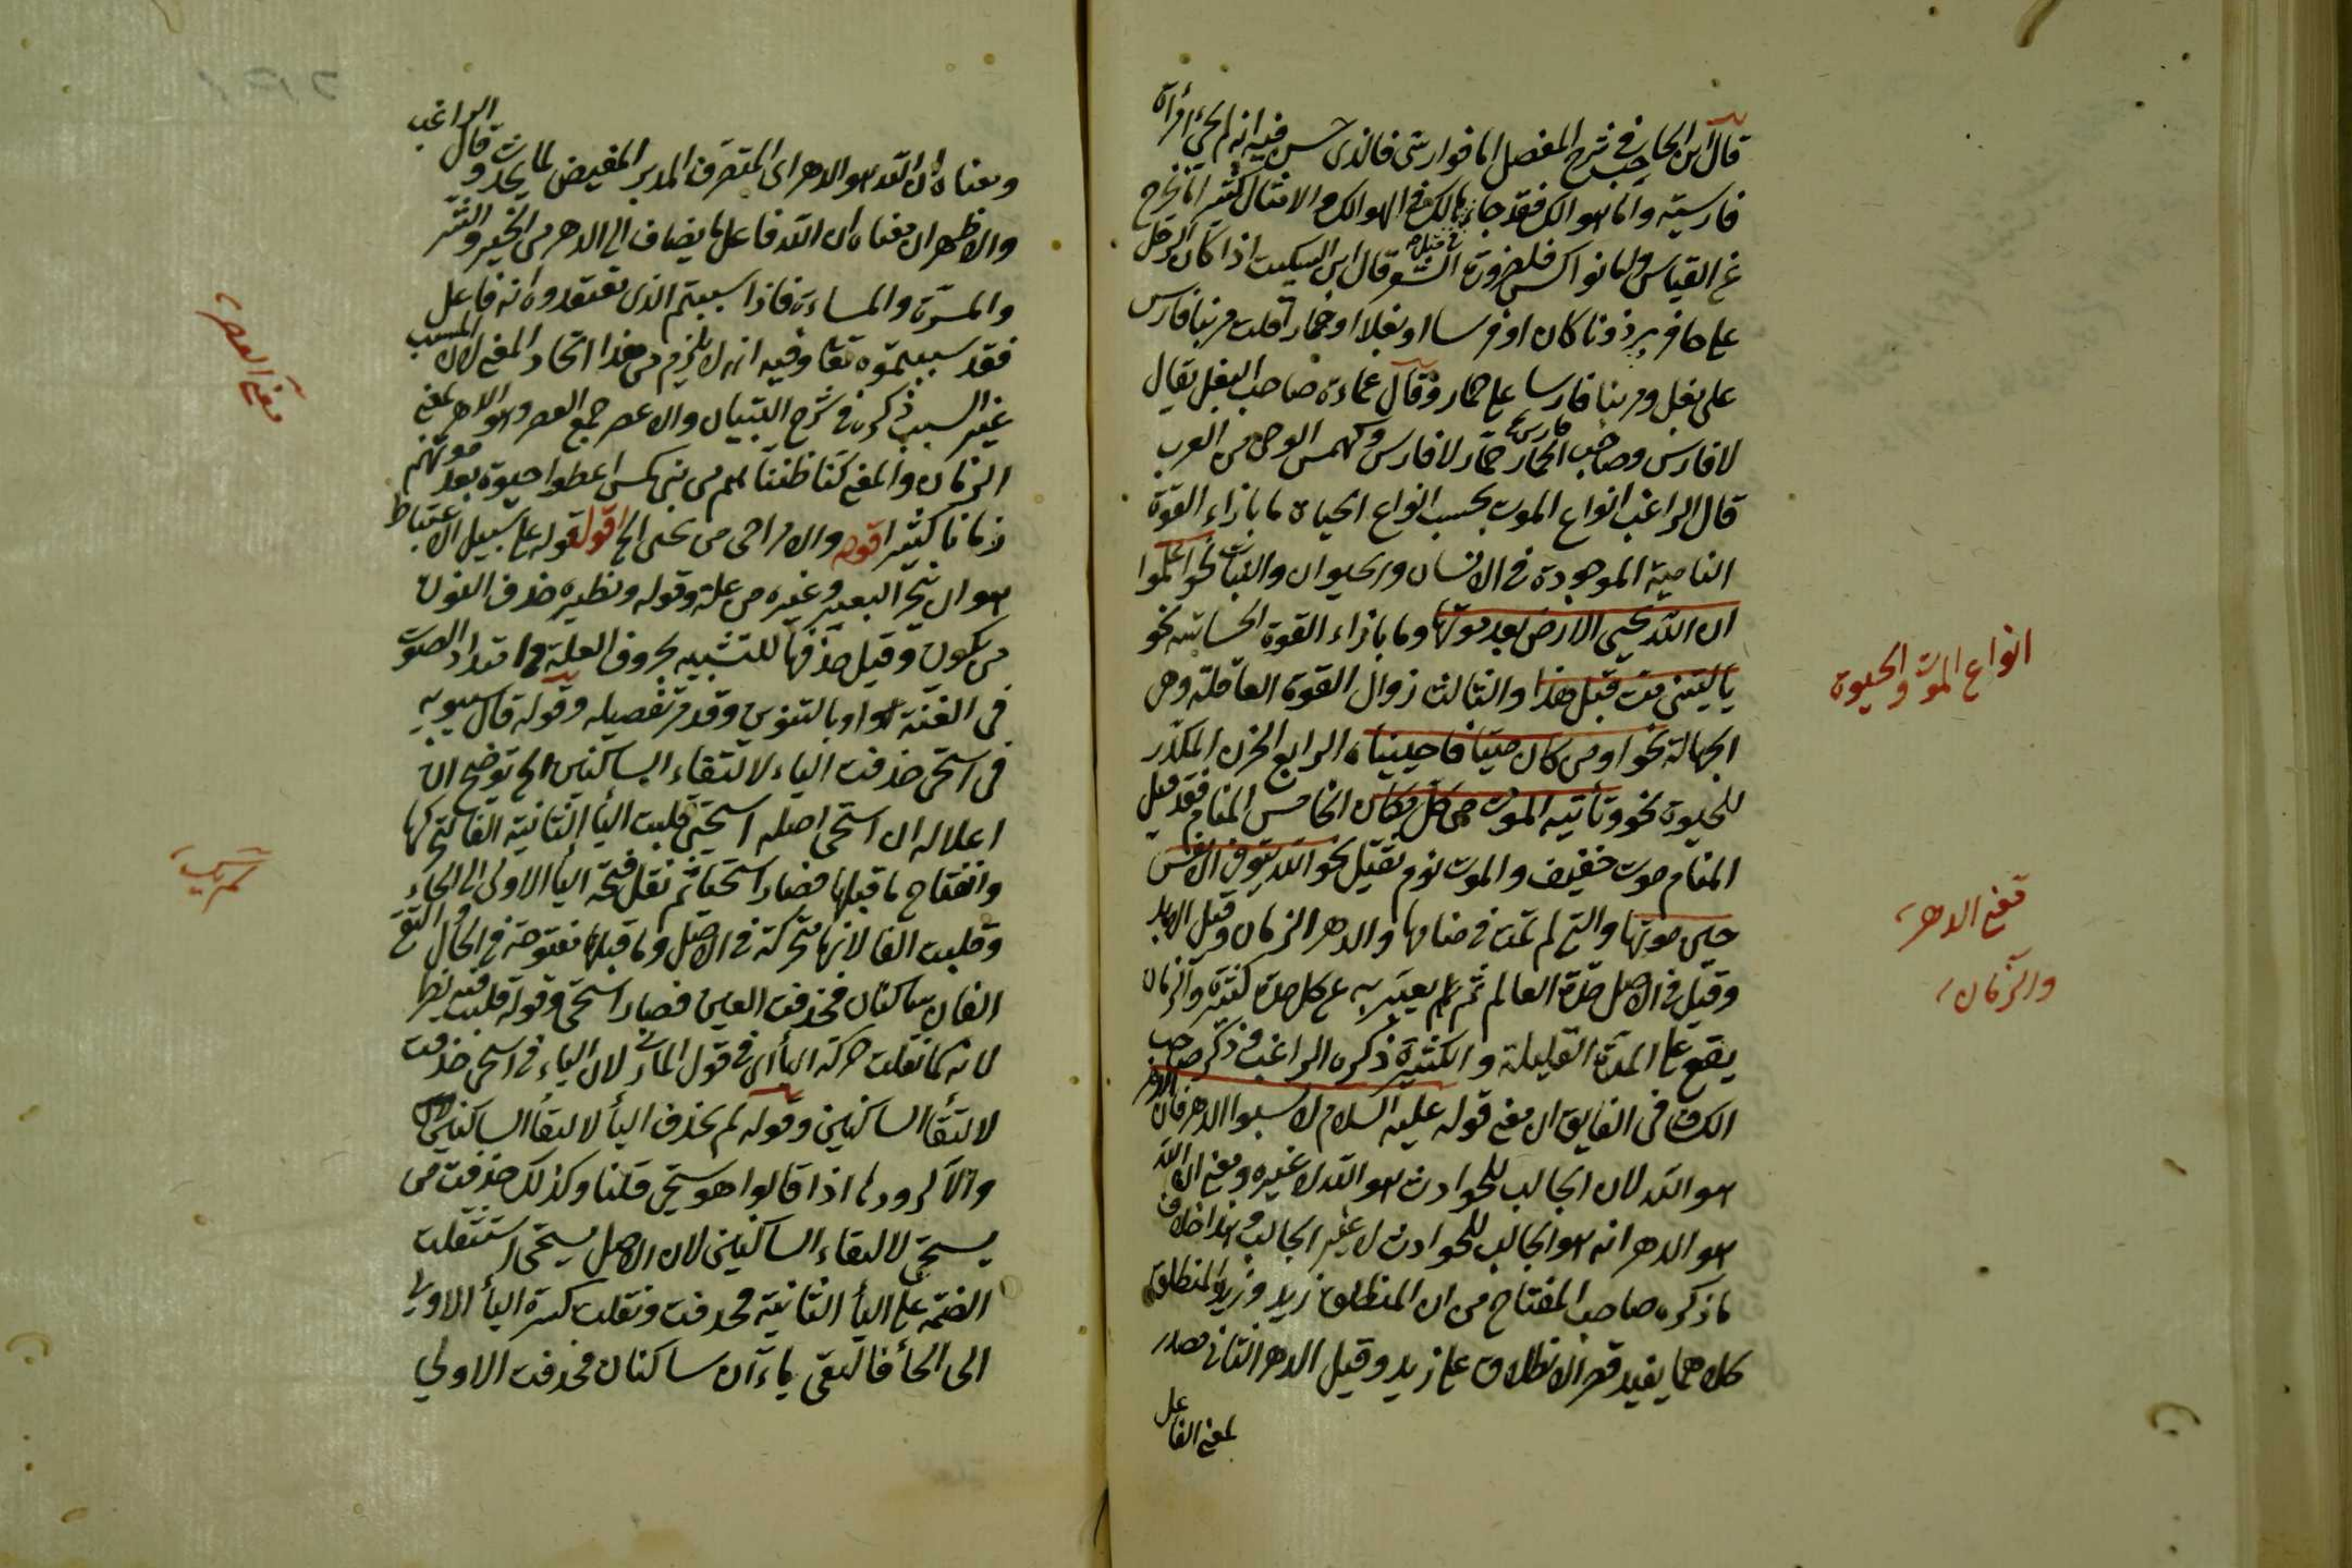 قال ابن الحاجب في شرح المفصل اما فوارس فالذي حسن فيه انه لم يجئ امرأة
فارسية واما هوالك فقد جاء هالك في الهوالك والامثال كثيرا ما تخرج
عن القياس واما نواكس فلضرورة الشعر قال ابن السكيت اذا كان الرجل
على حافر برذونا كان او فرسا او بغلا او حمارا قلت مر بنا فارس
على بغل ومر بنا فارسا على حمار وقال عمارة صاحب البغل بغال
لا فارس وصاحب الحمار حمار لا فارس وكهمس ابو حي من العرب
قال الراغب انواع الموت بحسب انواع الحياة ما بازاء القوة
النامية الموجودة في الانسان والحيوان والنبات نحو اعلموا
ان الله يحيي الارض بعد موتها وما بازاء القوة الحساسة نحو
يا ليتني مت قبل هذا والثالث زوال القوة العاقلة وهي
الجهالة نحو اومن كان ميتا فاحييناه الرابع الحزن المكدر
للحيوة نحو وتأتيه الموت من كل مكان الخامس المنام فقد قيل
المنام موت خفيف والموت نوم ثقيل نحو الله يتوفى الانفس
حين موتها والتي لم تمت في منامها والدهر الزمان وقيل الابد
وقيل في الاصل مدة العالم ثم يعبر به عن كل مدة كثيرة والزمان
يقع على المدة القليلة والكثيرة ذكره الراغب وذكر صاحب
الكشاف في الفايق ان معنى قوله عليه السلام لا تسبوا الدهر فان الدهر
هو الله لان الجالب للحوادث هو الله لا غيره ومعنى ان الله
هو الدهر انه هو الجالب للحوادث لا غير الجالب وهذا خلاف
ما ذكره صاحب المفتاح من ان المنطلق زيد وزيد المنطلق
كلاهما يفيد قصر الانطلاق على زيد وقيل الدهر الثاني مصدر
بمعنى الفاعل
انواع الموت والحيوة
معنى الدهر
والزمان
ومعناه ان الله هو الدهر اى المتصرف المدبر المفيض لما يحدث وقال الراغب
والاظهر ان معناه ان الله فاعل ما يضاف الى الدهر من الخير والشر
والمسرة والمساءة فاذا سببتم الذي تعتقدوه انه فاعل
فقد سببتموه تعا وفيه انه لا يلزم من هذا اتحاد المعنى لان المسبب
غير السبب ذكره في شرح التبيان والاعصر جمع العصر وهو الدهر بمعنى
الزمان والمعنى كنا ظننا انهم من بني كهمس اعطوا حيوة بعد موتهم
زمانا كثيرا قوله والامر احى من يحيى الخ اقول قوله على سبيل الاعتباط
هو ان تنحر البعير وغيره من علة وقوله ونظيره حذف النون
من يكون وقيل حذفها للتشبيه بحروف العلة وامتداد الصوت
في الغنة او بالتنوين وقد مر تفصيله وقوله قال سيبويه
في استحى حذفت الياء لالتقاء الساكنين الخ توضيح ان
اعلاله ان استحى اصله استحيي قلبت اليأ الثانية الفا لتحركها
وانفتاح ما قبلها فصار استحيا ثم نقل فتحة اليأ الاولى الى الحاء
وقلبت الفا لانها متحركة في الاصل وما قبلها مفتوحة في الحال والتقى
الفان ساكنان فحذفت العين فصار استحى وقوله قلت فيه نظر
لانه كما نقلت حركة اليأ اى في قول المازني لان الياء في استحى حذفت
لالتقأ الساكنين وقوله لم يحذف اليأ لالتقأ الساكنين
والا لردوها اذا قالوا هو يستحى قلنا وكذلك حذفت من
يستحى لالتقاء الساكنين لان الاصل يستحيى استثقلت
الضمة على اليأ الثانية فحذفت ونقلت كسرة اليأ الاولى
الى الحأ فالتقى ياءآن ساكنان فحذفت الاولى
معنى العصر